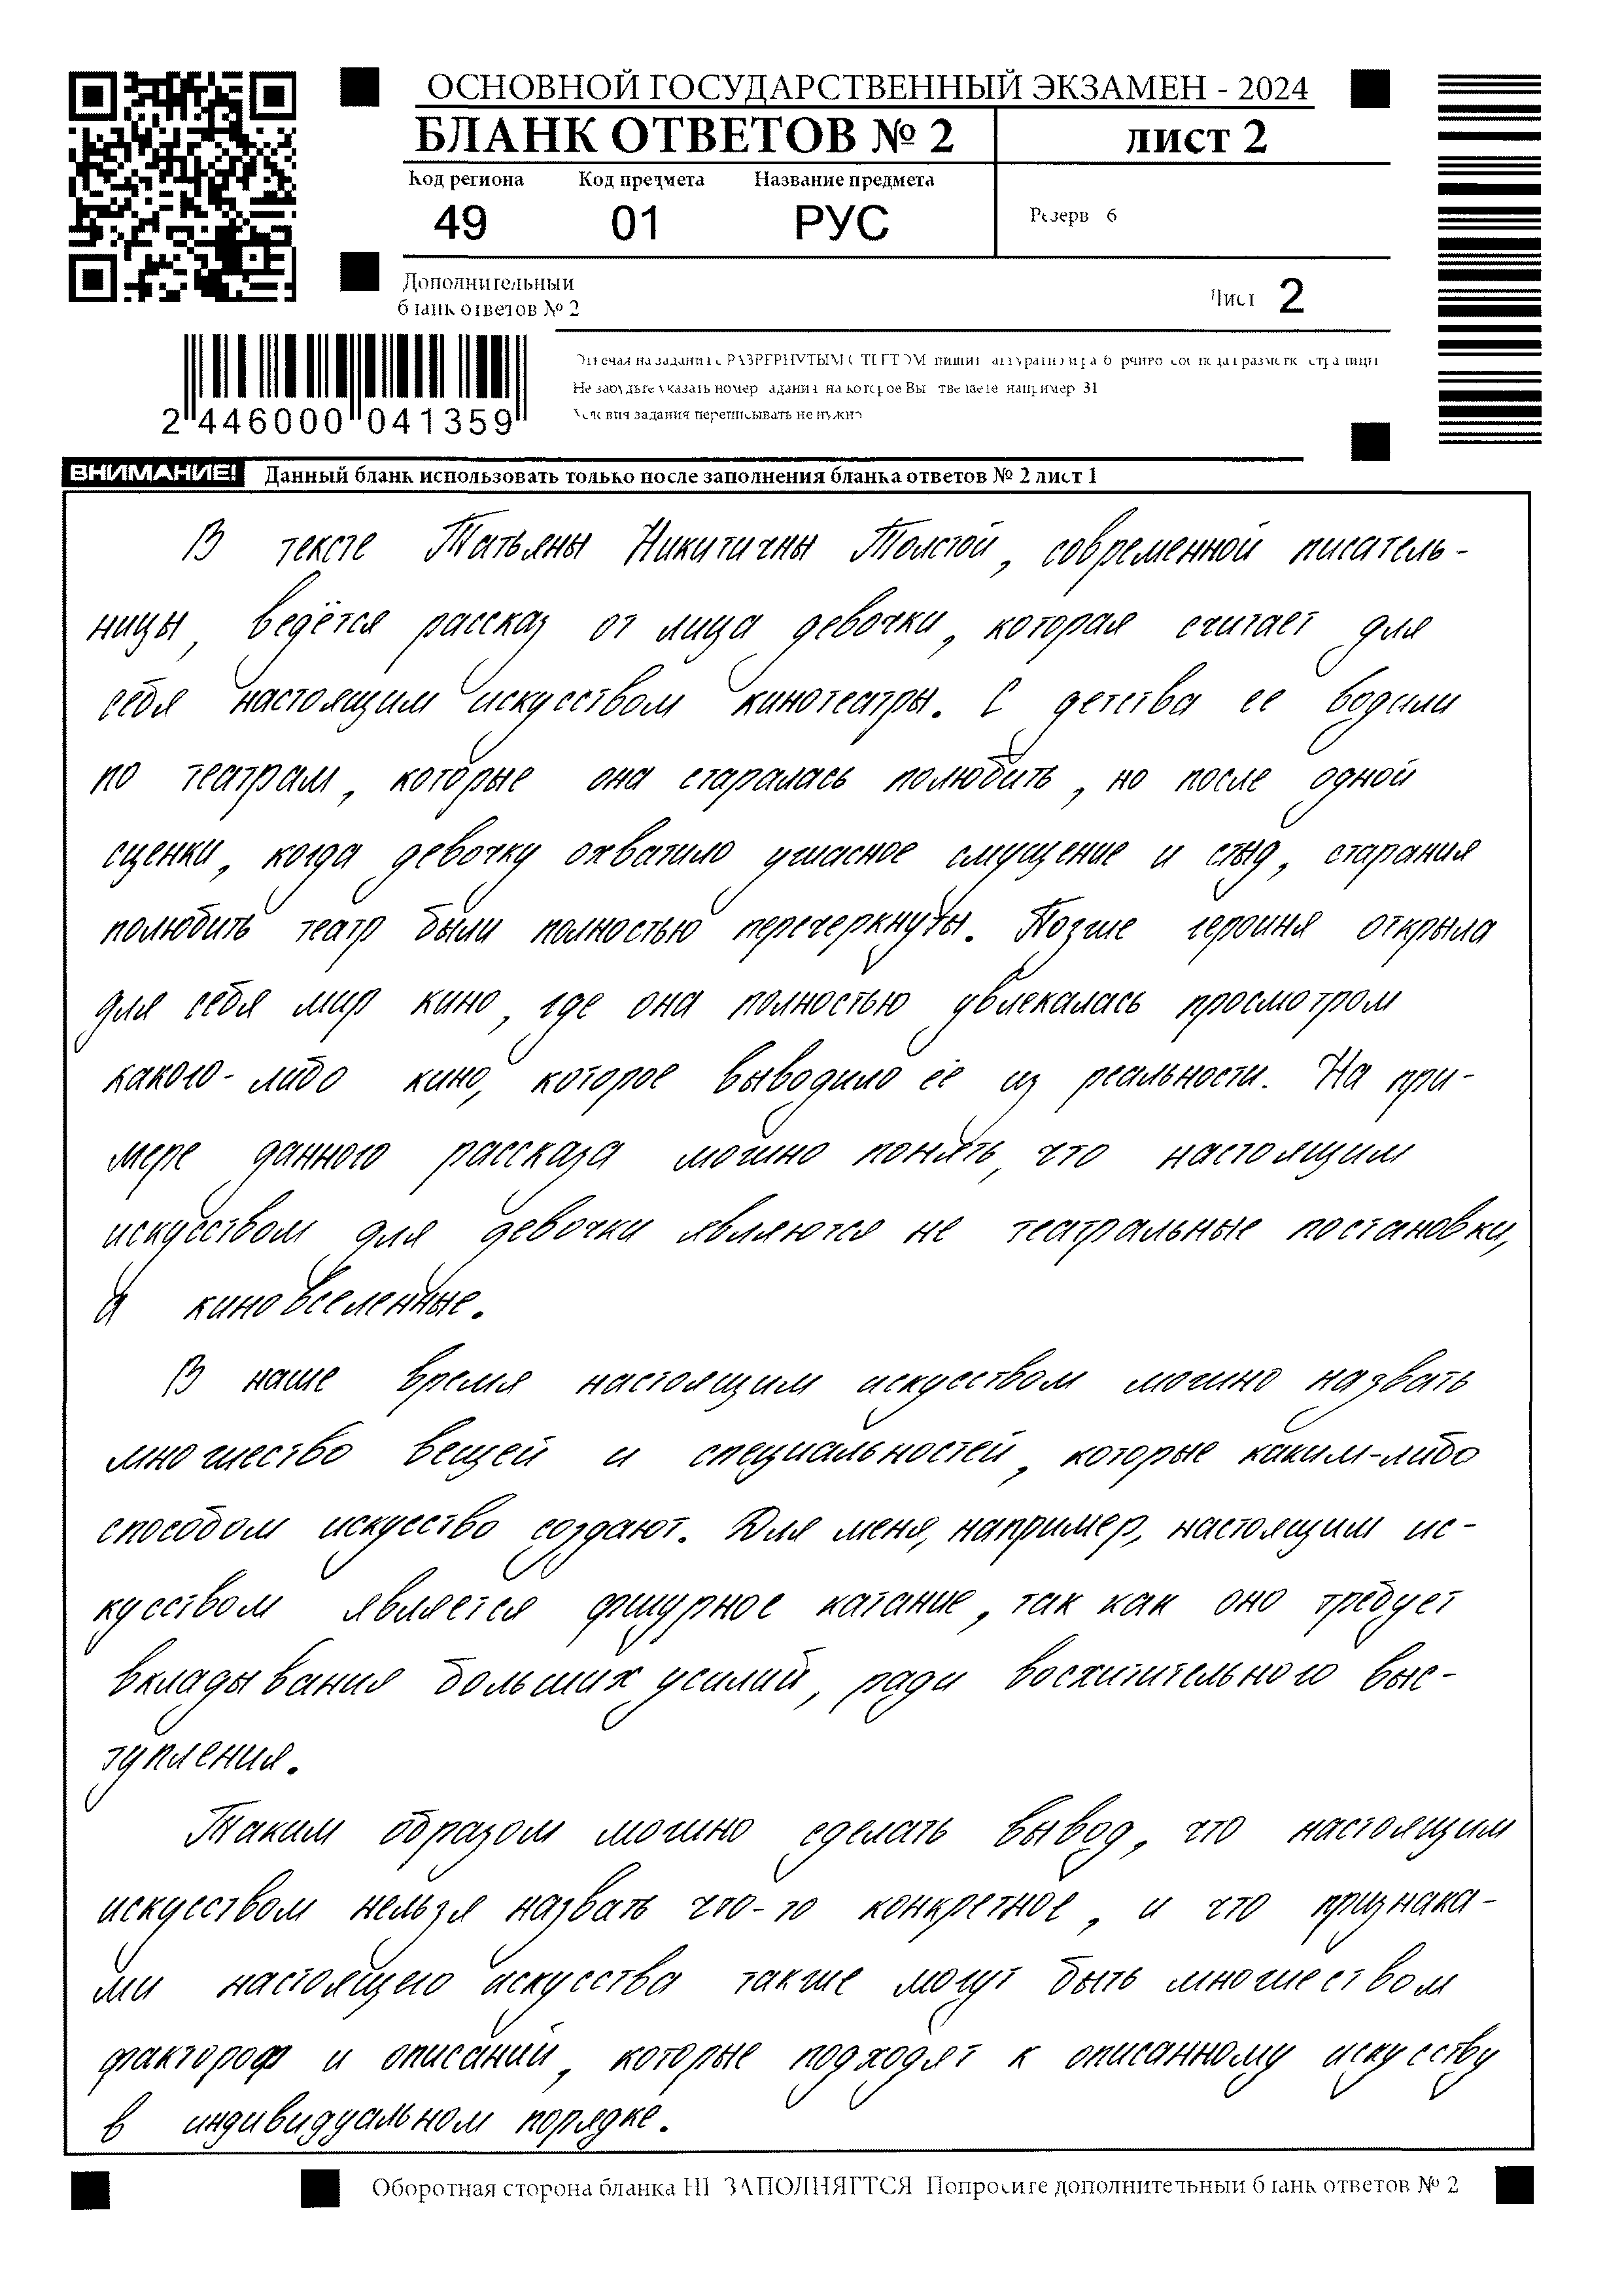 ОСНОВНОЙ ГОСУДАРСТВЕННЫЙ ЭКЗАМЕН - 2024
БЛАНК ОТВЕТОВ № 2
ЛИСТ 2
Код региона Код предмета Название предмета
49 01 РУС
Резерв 6
Дополнительный
бланк ответов № 2
Лист 2
Отвечая на задания с РАЗВЕРНУТЫМ ОТВЕТОМ, пишите аккуратно и разборчиво, соблюдая разметку страницы
Не забудьте указать номер задания, на которое Вы отвечаете, например 31
Условия задания переписывать не нужно
2 446000 041359
ВНИМАНИЕ! Данный бланк использовать только после заполнения бланка ответов № 2 лист 1
В тексте Татьяны Никитичны Толстой, современной писатель-
ницы, ведётся рассказ от лица девочки, которая считает для
себя настоящим искусством кинотеатры. С детства ее водили
по театрам, которые она старалась полюбить, но после одной
сценки, когда девочку охватило ужасное смущение и стыд, старания
полюбить театр были полностью перечеркнуты. Позже героиня открыла
для себя мир кино, где она полностью увлекалась просмотром
какого-либо кино, которое выводило её из реальности. На при-
мере данного рассказа можно понять, что настоящим
искусством для девочки являются не театральные постановки,
а киновселенные.
В наше время настоящим искусством можно назвать
множество вещей и специальностей, которые каким-либо
способом искусство создают. Для меня, например, настоящим ис-
кусством является фигурное катание, так как оно требует
вкладывания больших усилий, ради восхитительного выс-
тупления.
Таким образом можно сделать вывод, что настоящим
искусством нельзя назвать что-то конкретное, и что признака-
ми настоящего искусства также могут быть множеством
факторов и описаний, которые подходят к описанному искусству
в индивидуальном порядке.
Оборотная сторона бланка НЕ ЗАПОЛНЯЕТСЯ. Попросите дополнительный бланк ответов № 2